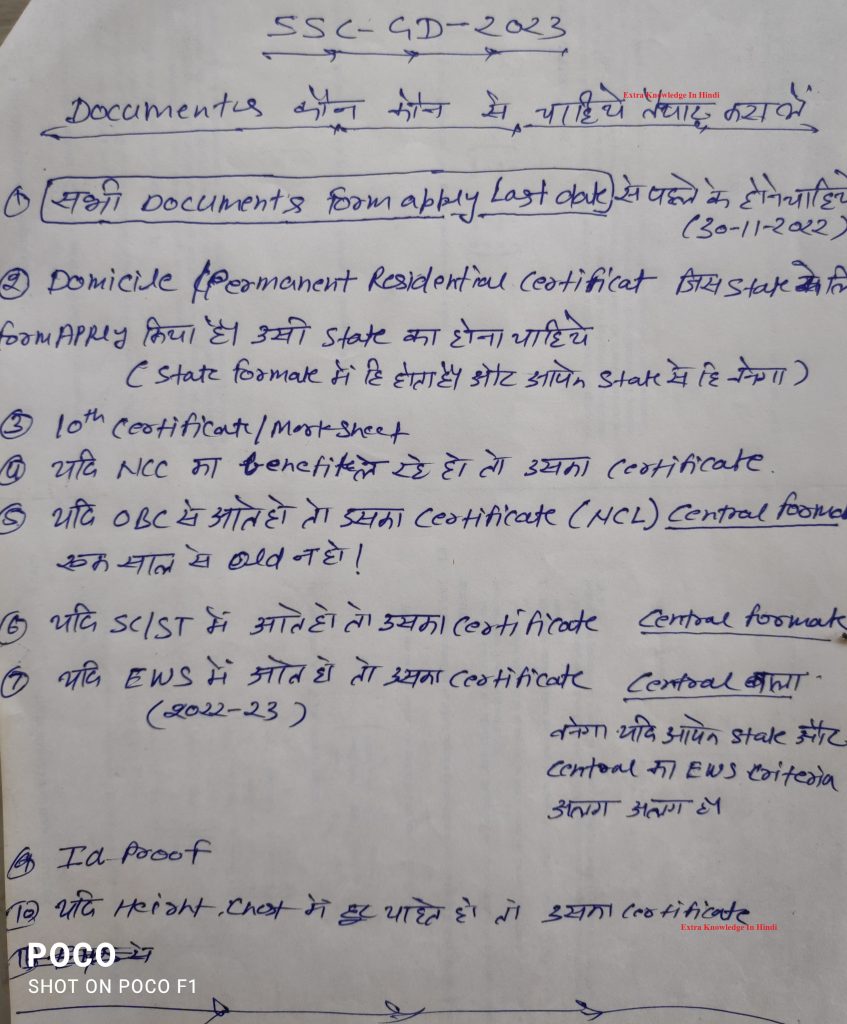 SSC-GD-2023
Extra Knowledge In Hindi
Documents कौन कौन से चाहिये तैयार करा लें
① सभी Documents form apply Last date से पहले के होने चाहिये
(30-11-2022)
② Domicile / Permanent Residential Certificat जिस State से
form APPly किया है। उसी State का होना चाहिये
( State formate में हि होता है। और आपके State से हि बनेगा )
③ 10th Certificate/Marksheet
④ यदि NCC का benefit ले रहे हो तो उसका Certificate.
⑤ यदि OBC से आते हो तो उसका Certificate (NCL) Central forma
एक साल से Old न हो!
⑥ यदि SC/ST में आते हो तो उसका Certificate Central formate
⑦ यदि EWS में आते हो तो उसका Certificate Central वाला
(2022-23)
बनेगा यदि आपके State और
Central का EWS Criteria
अलग अलग हो
Id Proof
⑩ यदि Height, Chest में छुट चाहते हो तो उसका Certificate
Extra Knowledge In Hindi
POCO
SHOT ON POCO F1